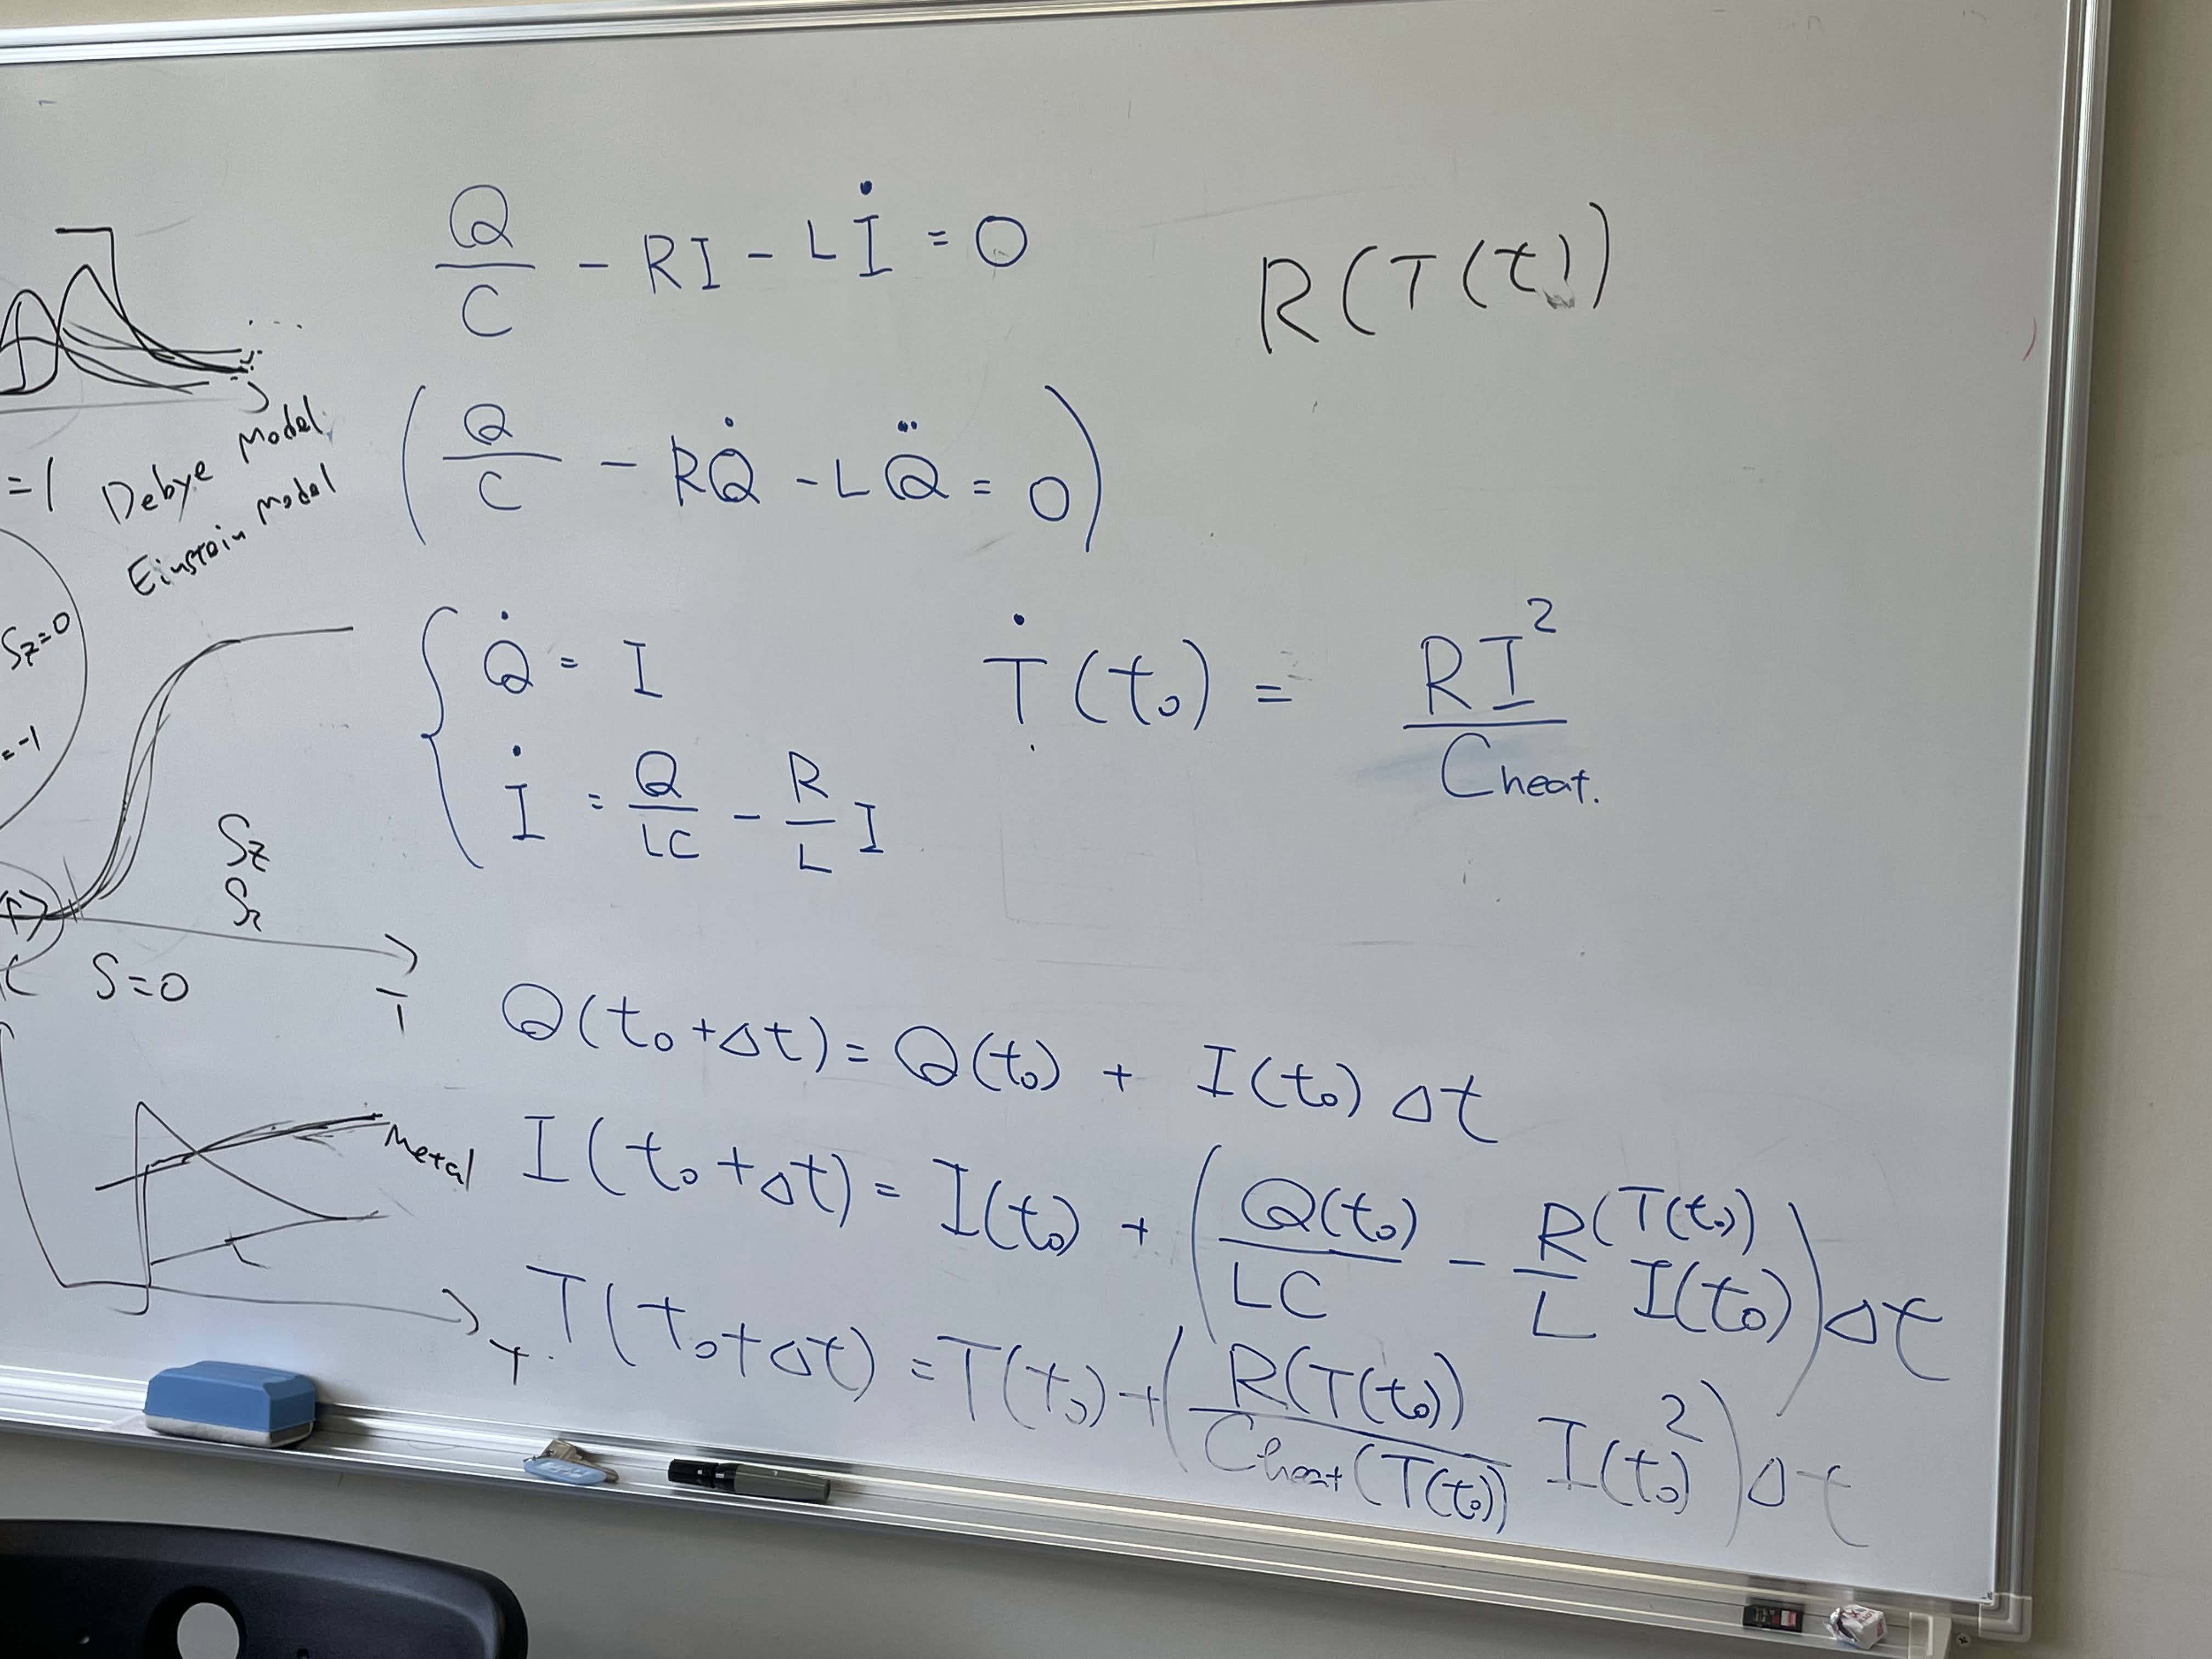 Q/C - RI - Lİ = 0
R(T(t))
(Q/C - RQ̇ - LQ̈ = 0)
=1 Debye Model
Einstein Model
Sz=0
=-1
Q̇ = I
İ = Q/LC - R/L I
Ṫ(t₀) = RI²/Cheat.
Sz
S=0
T
Q(t₀+Δt) = Q(t₀) + I(t₀)Δt
Metal
I(t₀+Δt) = I(t₀) + (Q(t₀)/LC - R(T(t₀))/L I(t₀))Δt
T(t₀+Δt) = T(t₀) + (R(T(t₀))/Cheat(T(t₀)) I(t₀)²)Δt
T